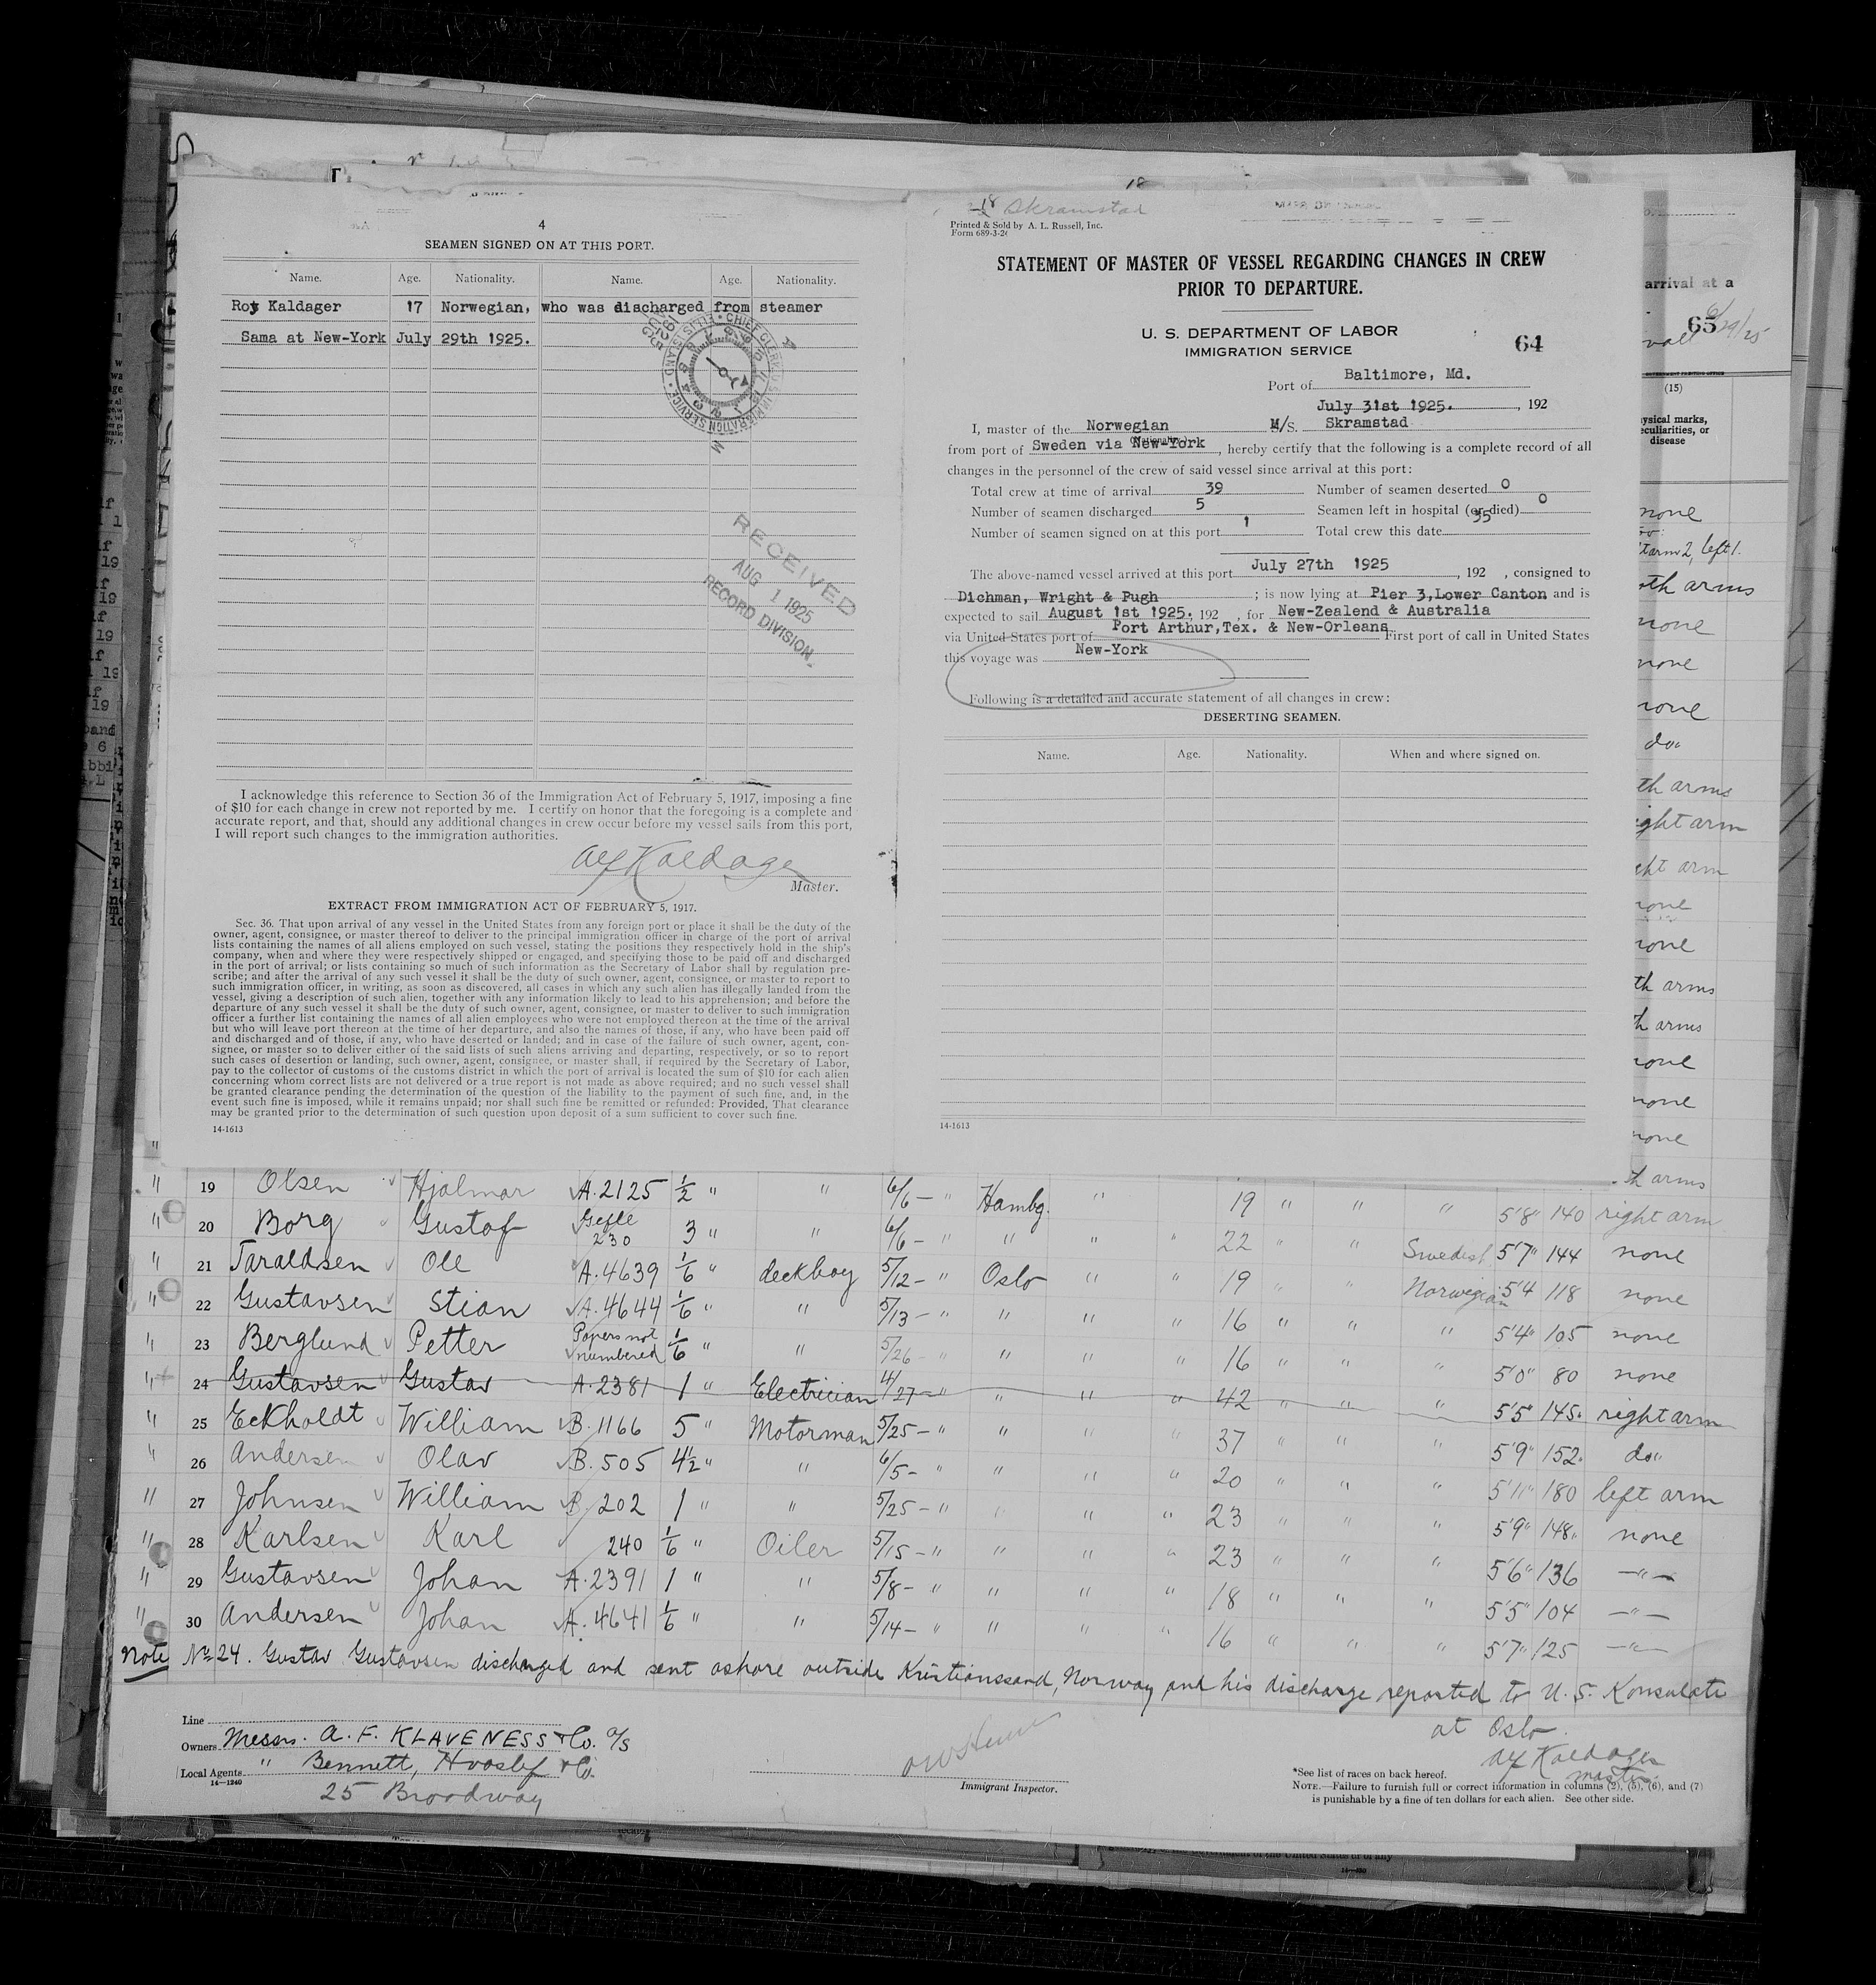 4
SEAMEN SIGNED ON AT THIS PORT.
Name. Age. Nationality. Name. Age. Nationality.
Roy Kaldager 17 Norwegian, who was discharged from steamer
Sama at New-York July 29th 1925.
RECEIVED
AUG 1 1925
RECORD DIVISION.
I acknowledge this reference to Section 36 of the Immigration Act of February 5, 1917, imposing a fine
of $10 for each change in crew not reported by me. I certify on honor that the foregoing is a complete and
accurate report, and that, should any additional changes in crew occur before my vessel sails from this port,
I will report such changes to the immigration authorities.
Alf Kaldager
Master.
EXTRACT FROM IMMIGRATION ACT OF FEBRUARY 5, 1917.
Sec. 36. That upon arrival of any vessel in the United States from any foreign port or place it shall be the duty of the
owner, agent, consignee, or master thereof to deliver to the principal immigration officer in charge of the port of arrival
lists containing the names of all aliens employed on such vessel, stating the positions they respectively hold in the ship's
company, when and where they were respectively shipped or engaged, and specifying those to be paid off and discharged
in the port of arrival; or lists containing so much of such information as the Secretary of Labor shall by regulation pre-
scribe; and after the arrival of any such vessel it shall be the duty of such owner, agent, consignee, or master to report to
such immigration officer, in writing, as soon as discovered, all cases in which any such alien has illegally landed from the
vessel, giving a description of such alien, together with any information likely to lead to his apprehension; and before the
departure of any such vessel it shall be the duty of such owner, agent, consignee, or master to deliver to such immigration
officer a further list containing the names of all alien employees who were not employed thereon at the time of the arrival
but who will leave port thereon at the time of her departure, and also the names of those, if any, who have been paid off
and discharged and of those, if any, who have deserted or landed; and in case of the failure of such owner, agent, con-
signee, or master so to deliver either of the said lists of such aliens arriving and departing, respectively, or so to report
such cases of desertion or landing, such owner, agent, consignee, or master shall, if required by the Secretary of Labor,
pay to the collector of customs of the customs district in which the port of arrival is located the sum of $10 for each alien
concerning whom correct lists are not delivered or a true report is not made as above required; and no such vessel shall
be granted clearance pending the determination of the question of the liability to the payment of such fine, and, in the
event such fine is imposed, while it remains unpaid; nor shall such fine be remitted or refunded: Provided, That clearance
may be granted prior to the determination of such question upon deposit of a sum sufficient to cover such fine.
14-1613
18 Skramstad
Printed & Sold by A. L. Russell, Inc.
Form 689-3-2
STATEMENT OF MASTER OF VESSEL REGARDING CHANGES IN CREW
PRIOR TO DEPARTURE.
U. S. DEPARTMENT OF LABOR
IMMIGRATION SERVICE
64
Port of Baltimore, Md.
July 31st 1925. , 192
I, master of the Norwegian M/S. Skramstad
(Nationality)
from port of Sweden via New-York , hereby certify that the following is a complete record of all
changes in the personnel of the crew of said vessel since arrival at this port:
Total crew at time of arrival 39 Number of seamen deserted 0
Number of seamen discharged 5 Seamen left in hospital (or died) 0
Number of seamen signed on at this port 1 Total crew this date 35
The above-named vessel arrived at this port July 27th 1925 , 192 , consigned to
Dichman, Wright & Pugh ; is now lying at Pier 3,Lower Canton and is
expected to sail August 1st 1925. 192 , for New-Zealend & Australia
via United States port of Port Arthur,Tex. & New-Orleans First port of call in United States
this voyage was New-York
Following is a detailed and accurate statement of all changes in crew:
DESERTING SEAMEN.
Name. Age. Nationality. When and where signed on.
14-1613
arrival at a
65
6/29/25
(15)
ysical marks,
eculiarities, or
disease
none
tarm 2, left 1.
oth arms
none
none
none
do"
th arms
ight arm
ght arm
none
none
th arms
h arms
none
none
none
th arms
" 19 Olsen Hjalmar A.2125 1/2 " " 6/6 - " Hambg. " 19 " " " 5'8" 140 right arm
" 20 Borg Gustof Gefle 230 3 " " 6/6 - " " " " 22 " " Swedish 5'7" 144 none
" 21 Taraldsen Ole A.4639 1/6 " deckboy 5/12 - " Oslo " " 19 " Norwegian 5'4 118 none
" 22 Gustavsen Stian A.4644 1/6 " " 5/13 - " " " 16 " " " 5'4" 105 none
" 23 Berglund Petter Papers not numbered 1/6 " " 5/26 - " " " " 16 " " " 5'0" 80 none
" 24 Gustavsen Gustav A.2381 1 " Electrician 4/27 - " " " " 42 " " " 5'5" 145. right arm
" 25 Eckholdt William B.1166 5 " Motorman 5/25 - " " " " 37 " " " 5'9" 152. do"
" 26 Andersen Olav B.505 4½ " " 6/5 - " " " " 20 " " " 5'11" 180 left arm
" 27 Johnsen William B.202 1 " " 5/25 - " " " " 23 " " " 5'9" 148. none
" 28 Karlsen Karl 240 1/6 " Oiler 5/15 - " " " " 23 " " " 5'6" 136 -"-
" 29 Gustavsen Johan A.2391 1 " " 5/8 - " " " " 18 " " " 5'5" 104 -"-
" 30 Andersen Johan A.4641 1/6 " " 5/14 - " " " " 16 " " " 5'7" 125 -"-
Note No 24. Gustav Gustavsen discharged and sent ashore outside Kristianssand, Norway and his discharge reported to U. S. Konsulate
at Oslo.
Alf Kaldager
master.
Line
Owners Messrs. A. F. KLAVENESS & Co. A/S
Local Agents " Bennett, Hvoslef & Co.
14-1240
25 Broadway
Immigrant Inspector.
*See list of races on back hereof.
NOTE.—Failure to furnish full or correct information in columns (2), (5), (6), and (7)
is punishable by a fine of ten dollars for each alien. See other side.